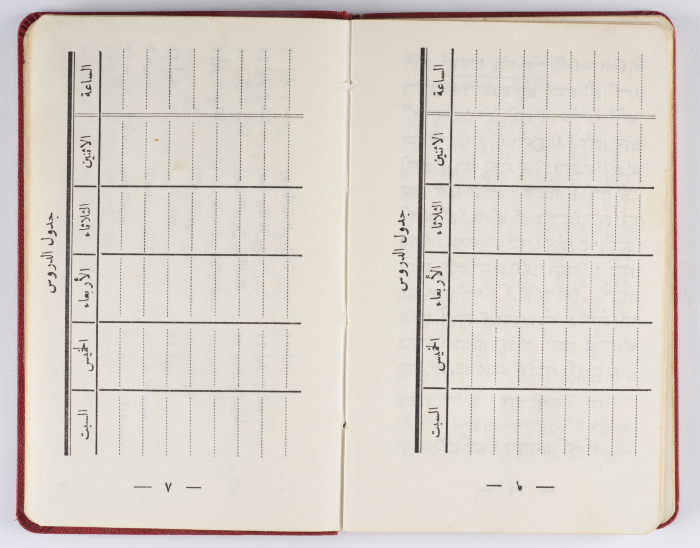 جدول الدروس
الساعة
الاثنين
الثلاثاء
الأربعاء
الخميس
السبت
— ٦ —
جدول الدروس
الساعة
الاثنين
الثلاثاء
الأربعاء
الخميس
السبت
— ٧ —